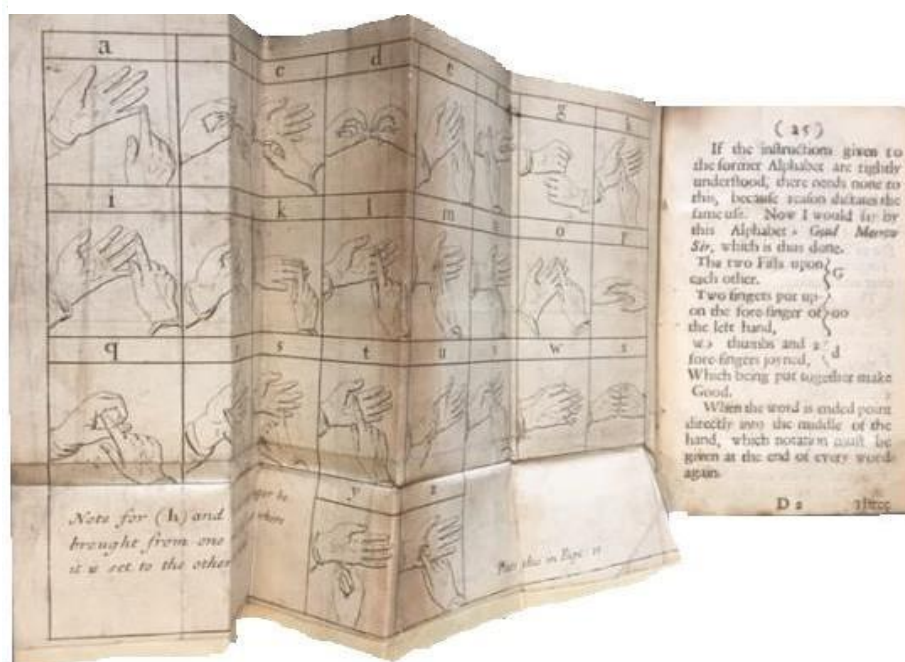 a c d e g h
i k l m o p
q s t u w x
y z
Note for (h) and
brought from one
it is set to the other
where
Put this in Page
( 25 )
If the instructions given to
the former Alphabet are rightly
understood, there needs none to
this, because reason dictates the
same use. Now I would say by
this Alphabet, Good Morrow
Sir, which is thus done.
The two Fists upon
each other. G
Two fingers put up
on the fore-finger of oo
the left hand,
thumbs and 2 d
fore-fingers joyned,
Which being put together make
Good.
When the word is ended point
directly into the middle of the
hand, which notation must be
given at the end of every word
again.
D 2 Three